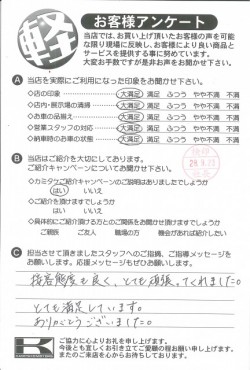 軽
お客様アンケート
当店では、お買い上げ頂いたお客様の声を可能
な限り現場に反映し、お客様により良い商品と
サービスを提供する事に努めています。
大変お手数ですが是非お声をお聞かせ下さい。
A 当店を実際にご利用になった印象をお聞かせ下さい。
◇店の印象 大満足 満足 ふつう やや不満 不満
◇店内・展示場の清掃 大満足 満足 ふつう やや不満 不満
◇お車の品揃え 大満足 満足 ふつう やや不満 不満
◇営業スタッフの対応 大満足 満足 ふつう やや不満 不満
◇納車時のお車の状態 大満足 満足 ふつう やや不満 不満
B 当店はご紹介を大切にしております。
ご紹介キャンペーンについてお聞かせ下さい。
◇カミタケご紹介キャンペーンのご説明はありましたでしょうか
はい いいえ
◇ご紹介を頂けますでしょうか
はい いいえ
◇具体的にご紹介頂ける方とのご関係をお聞かせ頂けますでしょうか
ご親戚 ご友人 職場の方 機会があれば紹介したい
C 担当させて頂きましたスタッフへのご指摘、ご指導メッセージを
お願いします。応援メッセージもぜひお願いします。
接客態度も良く、とても頑張ってくれました。
とても満足しています。
ありがとうございました。
K
ご協力に心よりお礼を申し上げます。
今後とも宜しくお引き立てご愛顧の程お願い申し上げます。
またのご来店を心からお待ちしております。